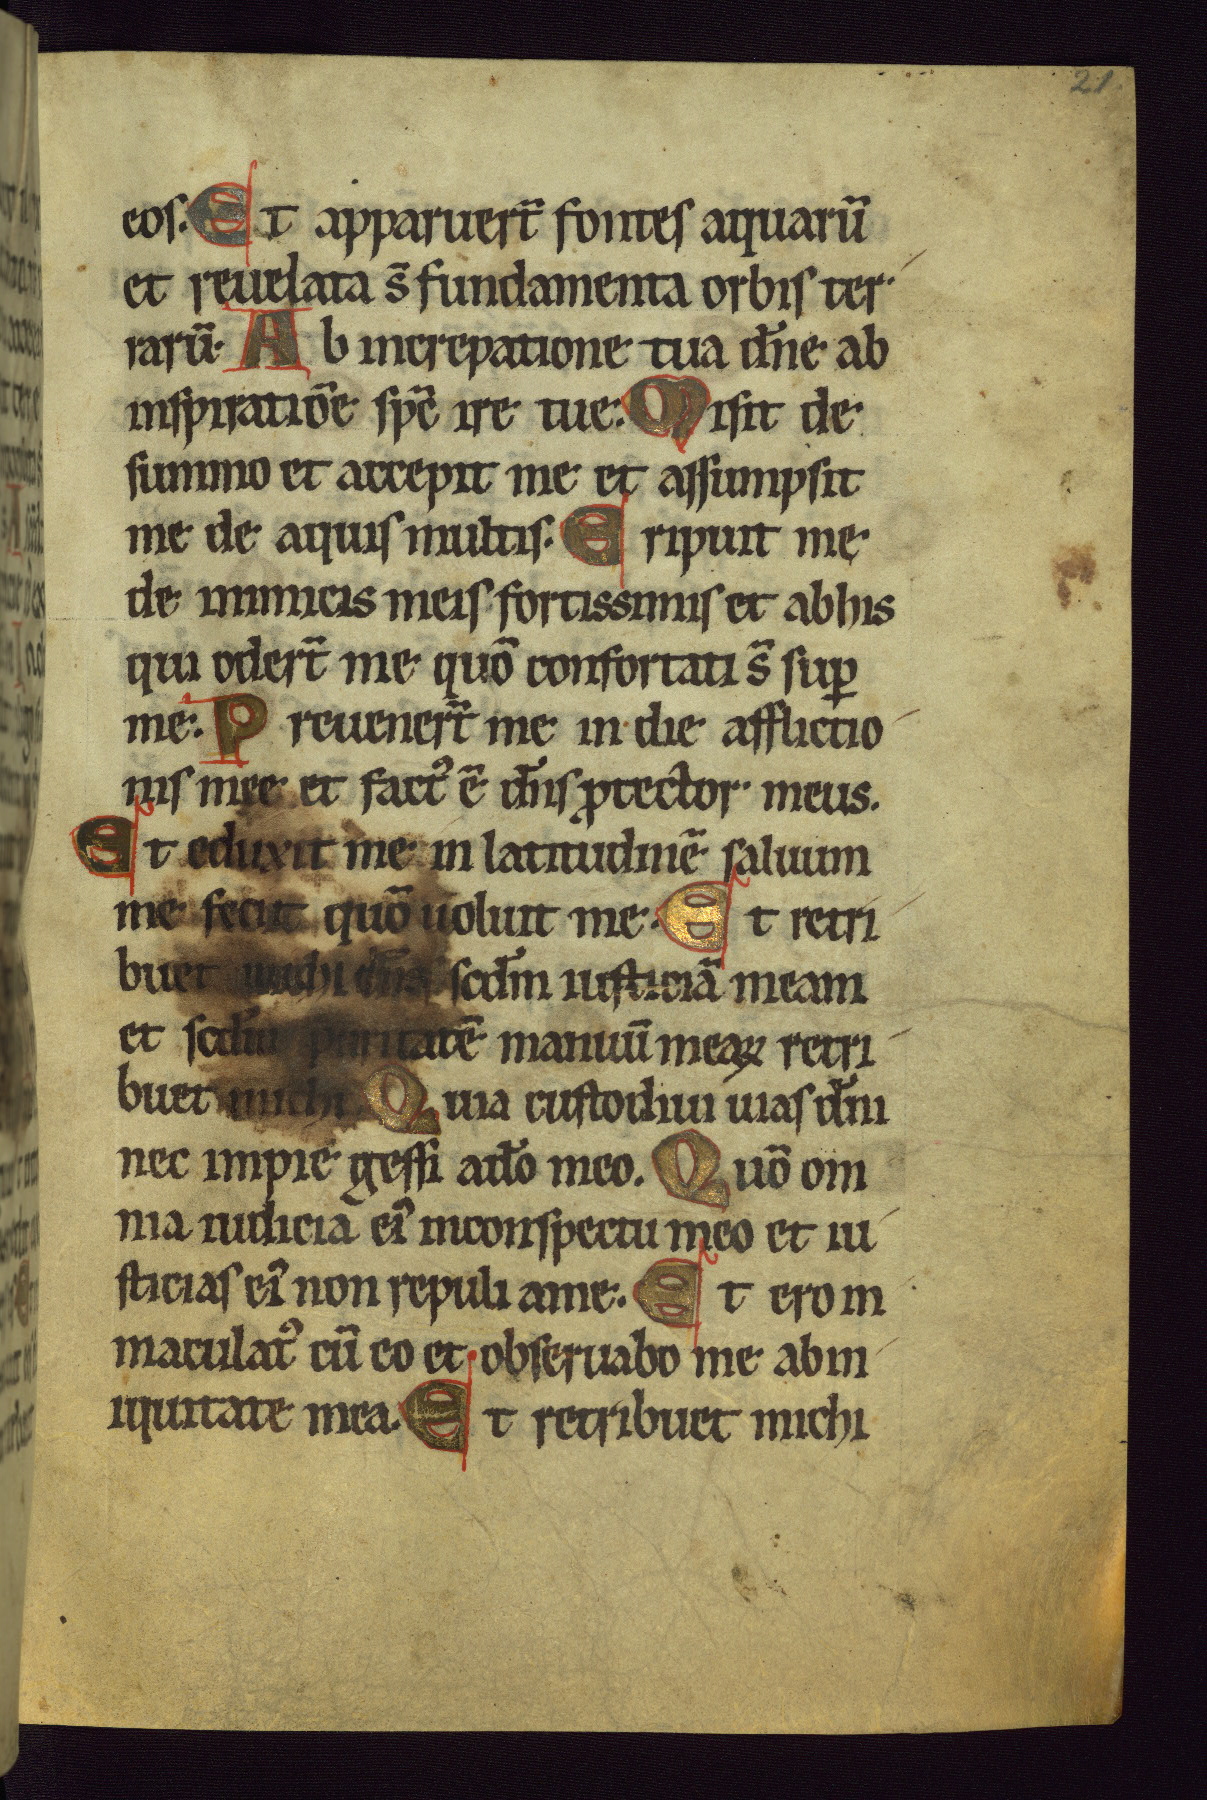 21.
eos. Et apparuer̄t fontes aquarū
et reuelata s̄ fundamenta orbis ter
rarū. Ab increpatione tua dn̄e ab
inspiratiōe spc̄ ire tue. Misit de
summo et accepit me et assumpsit
me de aquis multis. Eripuit me
de inimicis meis fortissimis et abhis
qui oder̄t me quō confortati s̄ suꝑ
me. Preuener̄t me in die afflictio
nis mee et fact᾽ ē dn̄s ꝓtector meus.
Et eduxit me in latitudinē saluum
me fecit quō uoluit me. Et retri
buet michi dn̄s scd̄m iusticiā meam
et scd̄m puritatē manuū meaꝝ retri
buet michi. Quia custodiui uias dn̄i
nec impie gessi ad̄o meo. Quō om
nia iudicia ei᾽ inconspectu meo et iu
sticias ei᾽ non repuli ame. Et ero in
maculat᾽ cū eo et obseruabo me abin
iquitate mea. Et retribuet michi